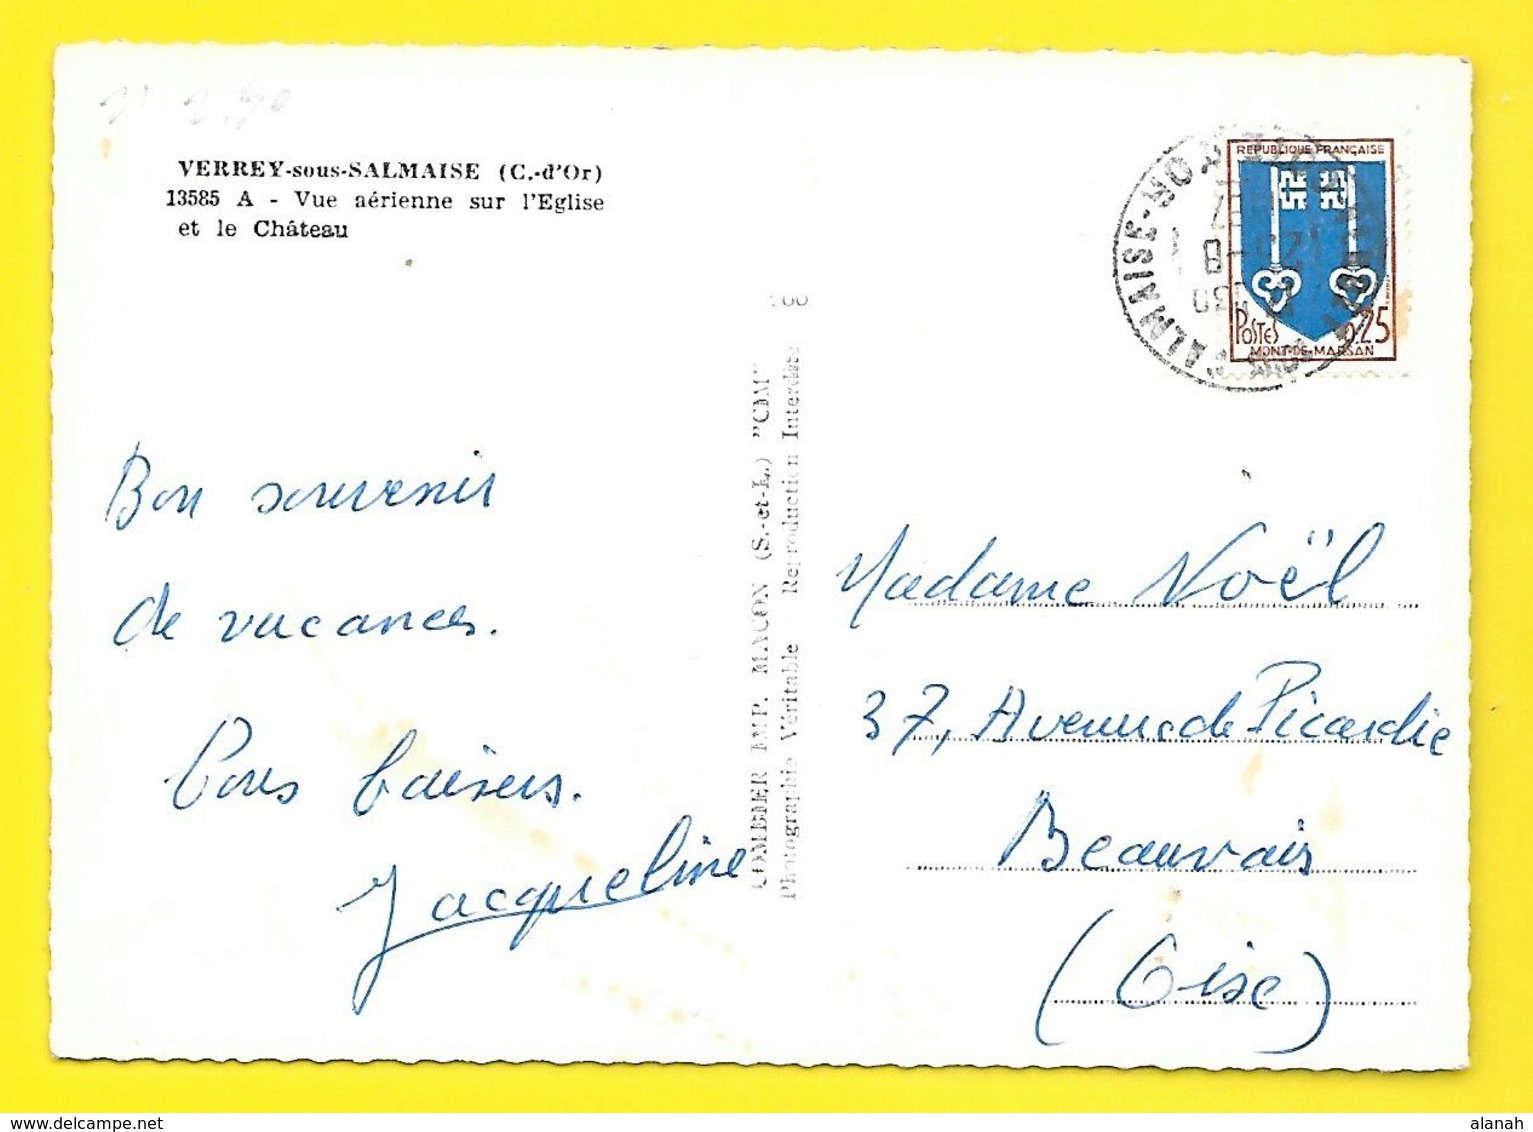 VERREY-sous-SALMAISE (C.-d'Or)
13585 A - Vue aérienne sur l'Eglise
et le Château
Bon souvenir
de vacances.
Bons baisers.
Jacqueline
COMBIER IMP. MACON (S.-et-L.) "CIM"
Photographie Véritable Reproduction Interdite
REPUBLIQUE FRANÇAISE
POSTES 0,25
MONT-DE-MARSAN
SALMAISE
Madame Noël
37, Avenue de Picardie
Beauvais
(Oise)
delcampe.net
alanah